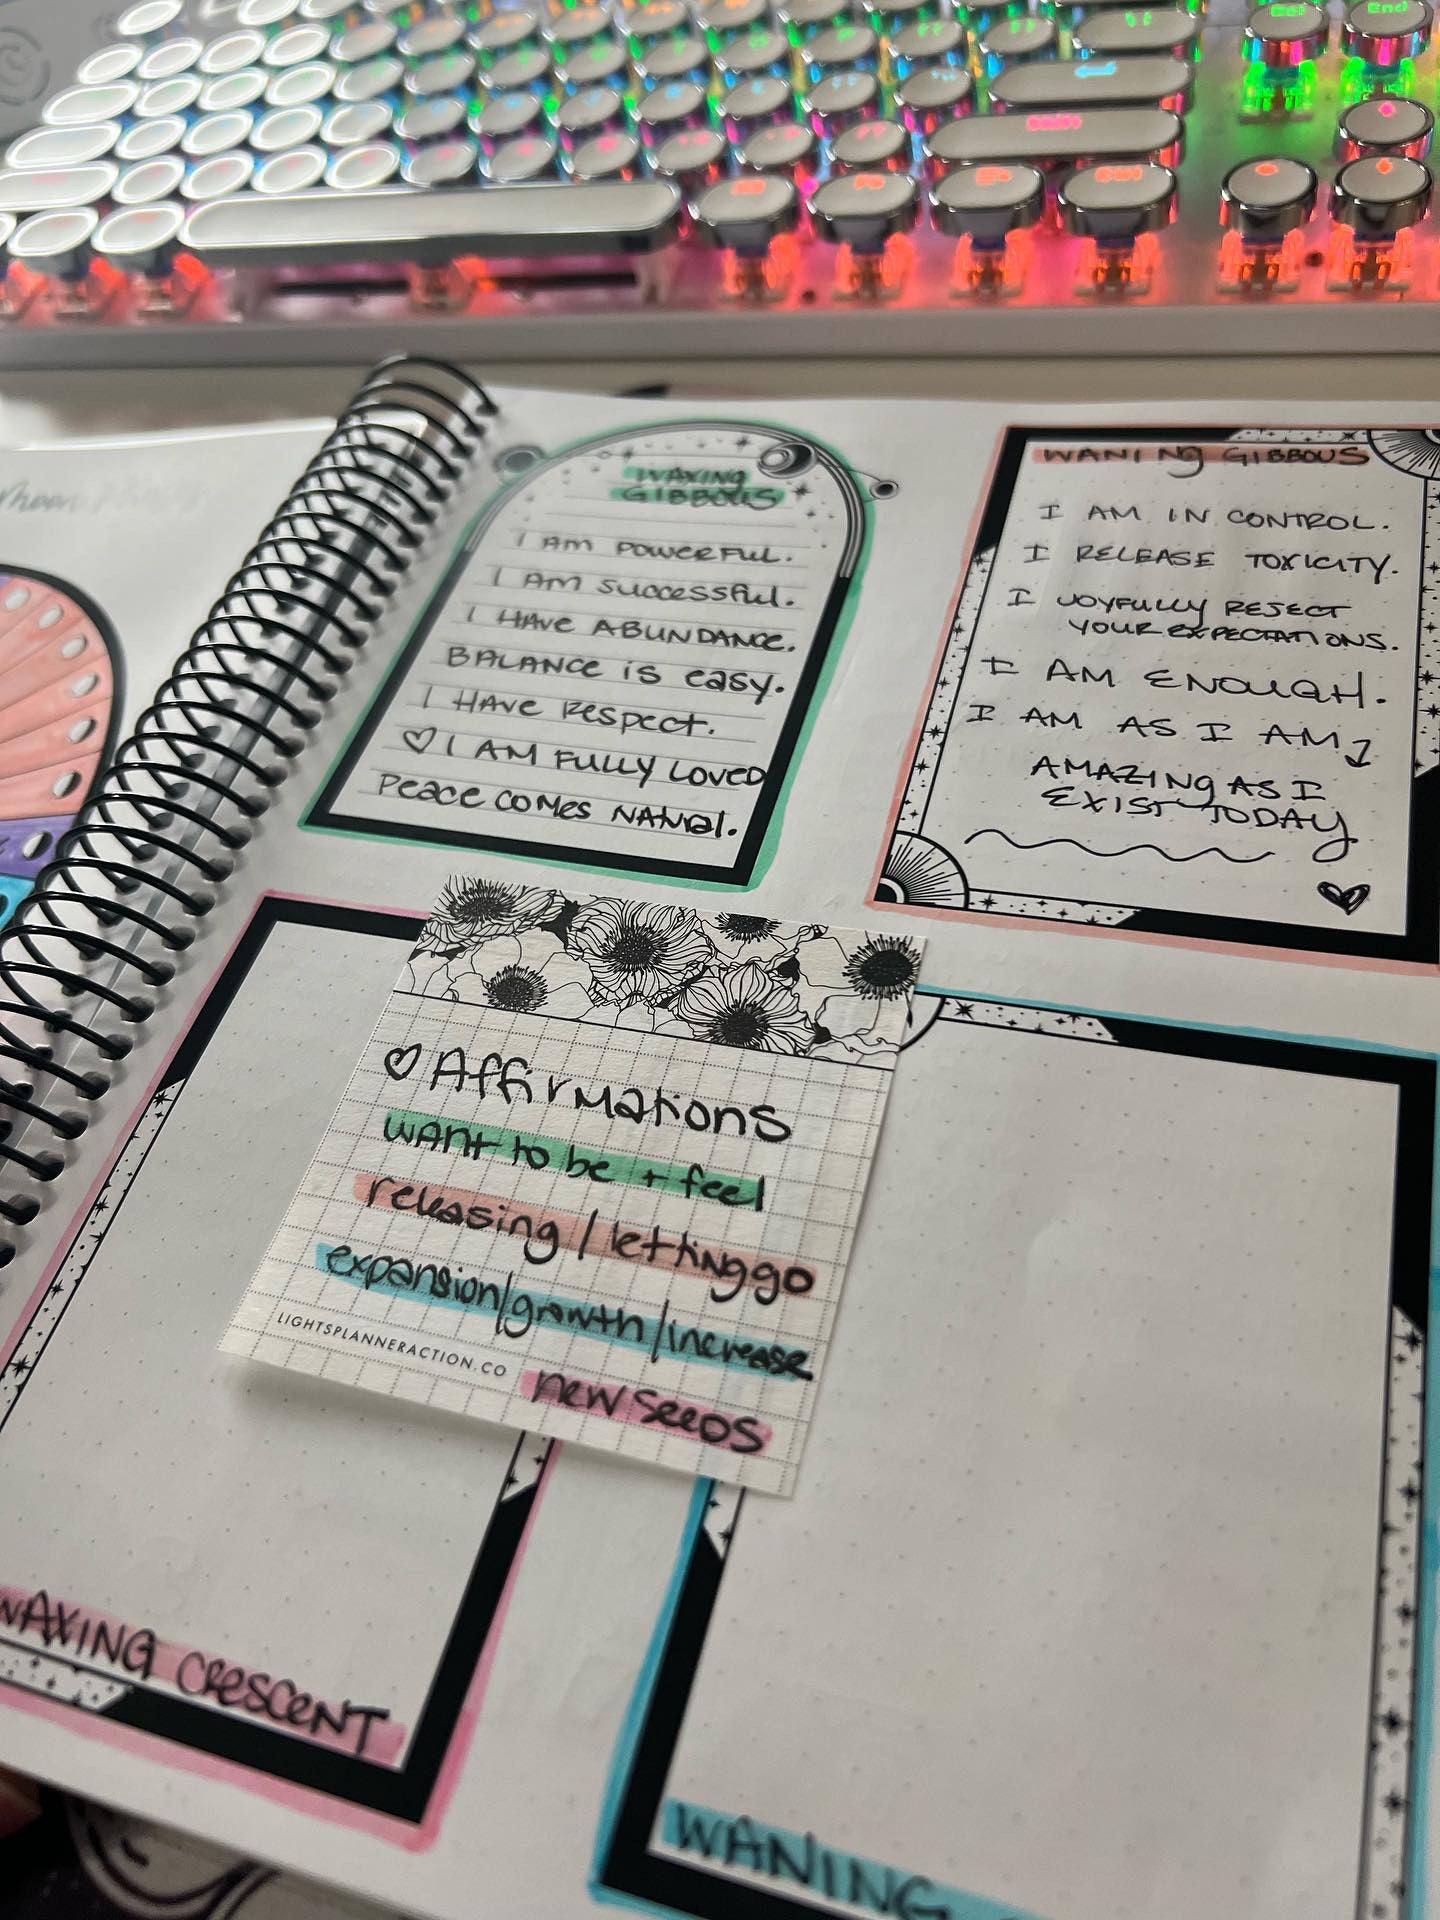 End
WAXING
GIBBOUS
I AM POWERFUL.
I AM successful.
I HAVE ABUNDANCE.
BALANCE is easy.
I HAVE Respect.
♡ I AM FULLY LOVED
Peace comes NAtural.
WANING GIBBOUS
I AM IN CONTROL.
I RELEASE TOXICITY.
I JOYFULLY REJECT
YOUR EXPECTATIONS.
I AM ENOUGH.
I AM AS I AM
AMAZING AS I
EXIST TODAY
♡ Affirmations
want to be + feel
releasing / letting go
expansion/growth/increase
LIGHTSPLANNERACTION.CO
new seeds
WAXING CRESCENT
WANING